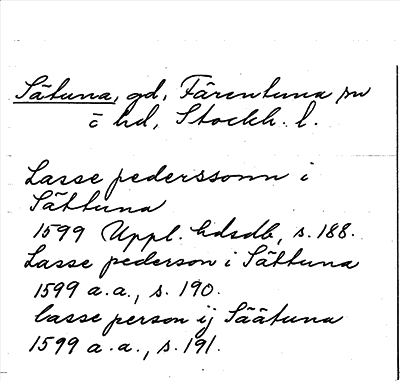 Sätuna, gd, Färentuna sn
o hd, Stockh. l.
Lasse pederssonn i
Sättuna
1599 Uppl. hdsdb, s. 188.
Lasse pederson i Sättuna
1599 a.a., s. 190.
lasse person ij Säätuna
1599 a.a., s. 191.